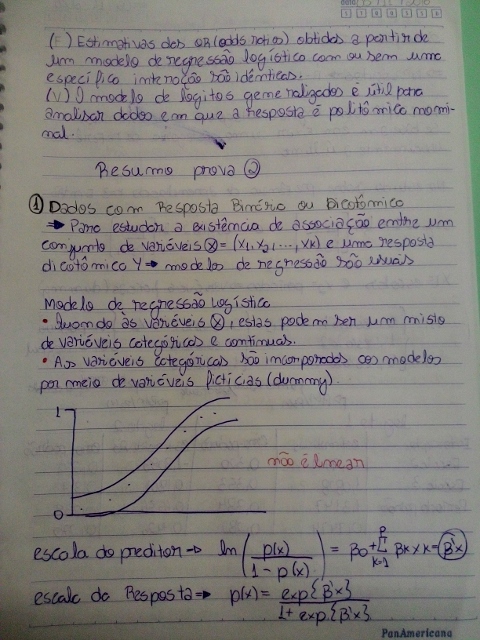 (F) Estimativas dos OR (odds ratios) obtidas a partir de
um modelo de regressão logística com ou sem uma
específica interação são idênticas.
(V) O modelo de logitos generalizados é útil para
analisar dados em que a resposta é politômica nomi-
nal.
Resumo prova ②
① Dados com Resposta Binária ou Dicotômica
→ Para estudar a existência de associação entre um
conjunto de variáveis X = (X1, X2, ..., Xk) e uma resposta
dicotômica Y → modelos de regressão são usuais
Modelo de regressão Logística
• Quando às variáveis X, estas podem ser um misto
de variáveis categóricas e contínuas.
• As variáveis categóricas são incorporadas aos modelos
por meio de variáveis fictícias (dummy).
1
não é linear
0
escala do preditor → ln(p(x)/1 - p(x)) = β0 + Σ k=1 p βk xk = β'x
escala da Resposta → p(x) = exp{β'x}/1 + exp{β'x}
PanAmericana